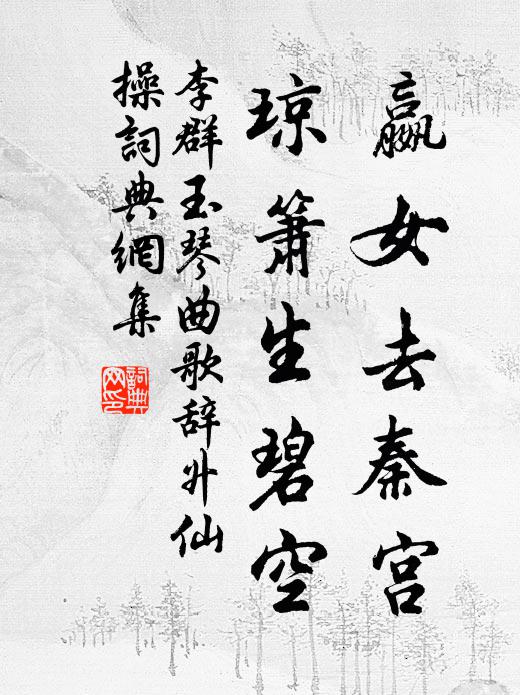 嬴女去秦宫
琼箫生碧空
李群玉琴曲歌辞升仙
操詞典網集
詞典网印